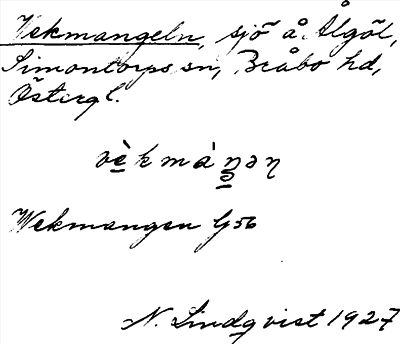 Vekmangeln, sjö å Ålgöl,
Simontorps sn, Bråbo hd,
Östergl.
vèkmáŋən
Wekmangen G56
N. Lindqvist 1927